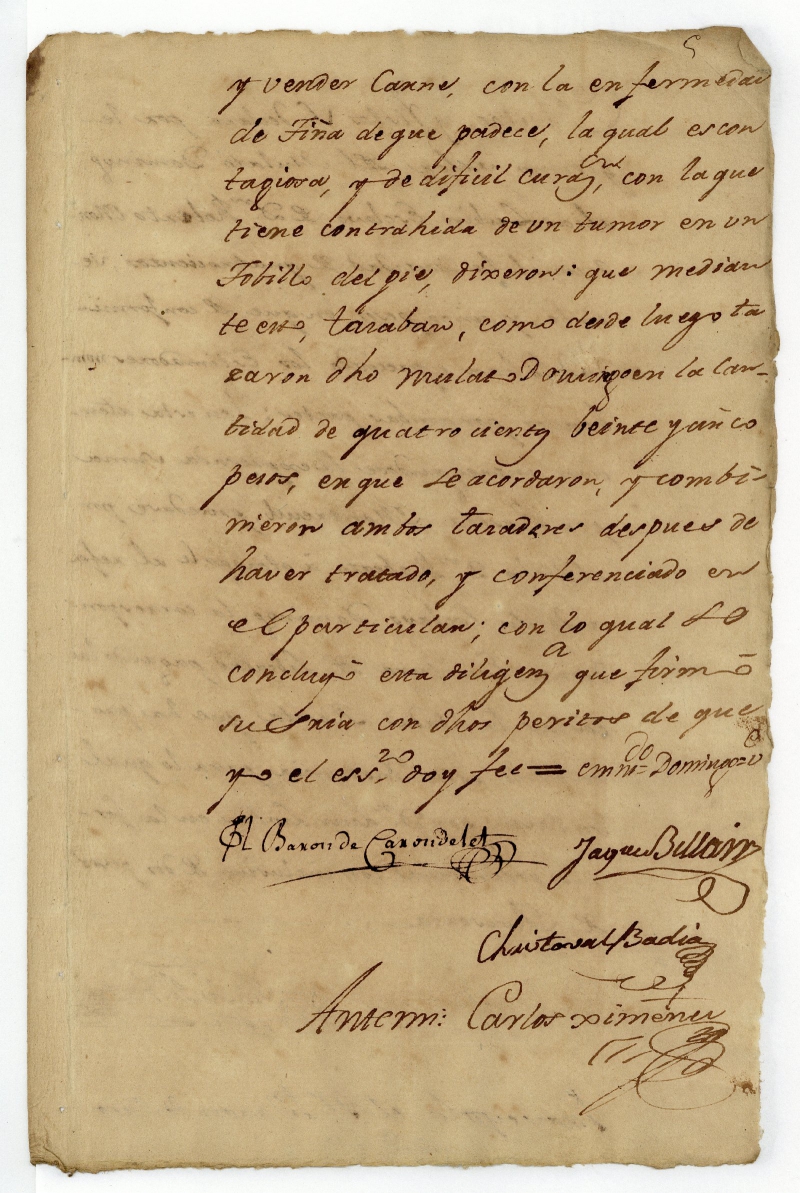 5
y vender Carne, con la enfermedad
de Tiña de que padece, la qual es con
tagiosa, y de dificil curaçon, con la que
tiene contrahida de un tumor en un
Tobillo del pie, dixeron: que median
te esto, tasaban, como desde luego ta
saron dho mulato Domingo en la Can-
tidad de quatrocientos beinte y cinco
pesos, en que se acordaron, y combi-
nieron ambos tasadores despues de
haver tratado, y conferenciado en
el particular; con lo qual se
concluyó esta diligena que firmó
su Sria con dhos peritos de que
yo el essno doy fee = emmdo = Domingo = v
El Baron de Carondelet
Jaques
Christoval Badia
Antemi: Carlos Ximenes